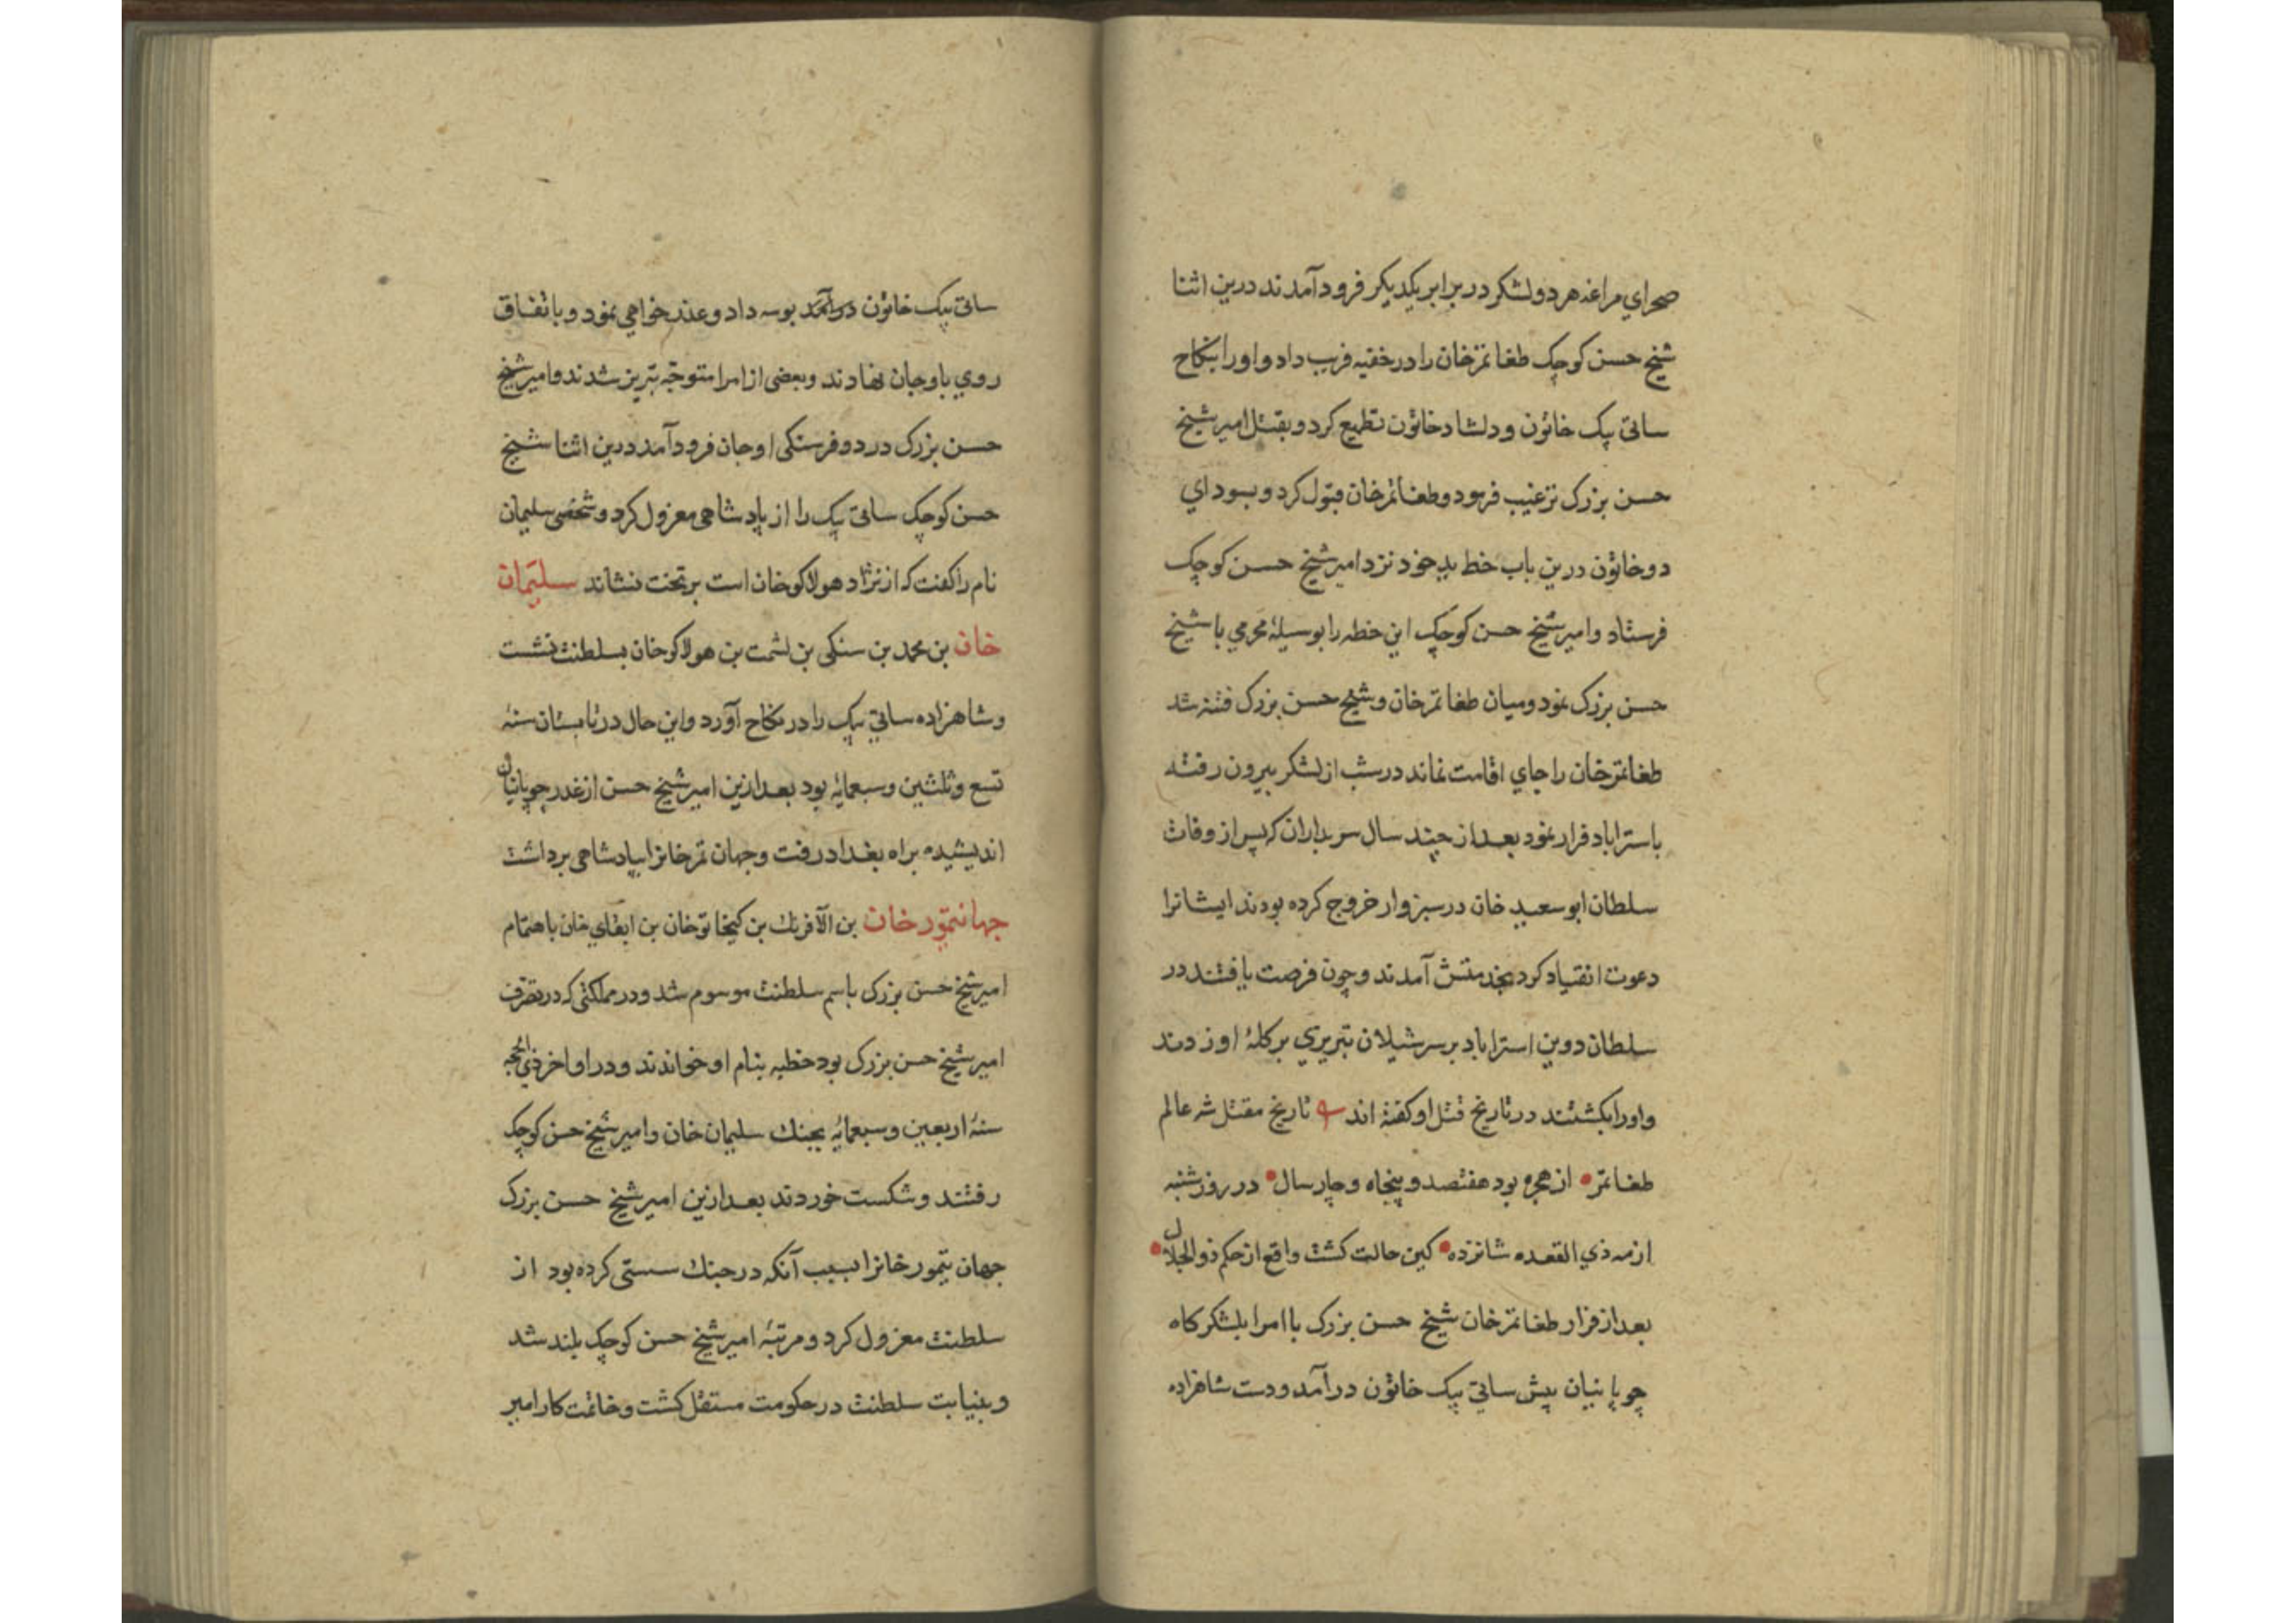 صحراي مراغه هر دو لشكر در برابر يكديكر فرود آمدند درين اثنا
شيخ حسن كوچك طغا تمرخان را در خفيه فريب داد و او را بنكاح
ساتى بيك خاتون و دلشاد خاتون تطميع كرد و بقتل امير شيخ
حسن بزرك ترغيب فرمود و طغا تمرخان قبول كرد و بسوداي
دو خاتون درين باب خط بد خود نزد امير شيخ حسن كوچك
فرستاد و امير شيخ حسن كوچك اين خطه را بوسيلهٔ محرمي با شيخ
حسن بزرك نمود و ميان طغا تمرخان و شيخ حسن بزرك فتنه شد
طغا تمرخان را جاي اقامت نماند در شب از لشكر بيرون رفته
باستراباد فرار نمود بعد از چند سال سربداران كه پس از وفات
سلطان ابو سعيد خان در سبزوار خروج كرده بودند ايشانرا
دعوت انقياد كرد بخدمتش آمدند و چون فرصت يافتند در
سلطان دوين استراباد بر سر شيلان تبريزي بر كلهٔ او زدند
و او را بكشتند در تاريخ قتل او كفته اند تاريخ مقتل شه عالم
طغا تمر • از هجره بود هفتصد و پنجاه و چار سال • در روز شنبه
از مه ذي القعده شانزده • كين حالت كشت واقع از حكم ذو الجلال •
بعد از فرار طغا تمرخان شيخ حسن بزرك با امرا بلشكركاه
چوپانيان پيش ساتى بيك خاتون در آمد و دست شاهزاده
ساتى بيك خاتون در آمد بوسه داد و عذر خواهي نمود و باتفاق
روي باوجان نهادند و بعضى از امرا متوجّه تبريز شدند و امير شيخ
حسن بزرك در دو فرسنكى اوجان فرود آمد درين اثنا شيخ
حسن كوچك ساتى بيك را از پادشاهى معزول كرد و شخصى سليمان
نام را كفت كه از نژاد هولاكوخان است بر تخت نشاند سليمان
خان بن محمد بن سنكى بن لشمت بن هولاكوخان بسلطنت نشست
و شاهزاده ساتى بيك را در نكاح آورد و اين حال در تابستان سنهٔ
تسع و ثلثين و سبعمايه بود بعد ازين امير شيخ حسن از غدر چوپانيان
انديشيده براه بغداد رفت و جهان تمرخانرا بپادشاهى برداشت
جهانتمور خان بن الآفرنك بن كيخاتوخان بن ابقاي خان باهتمام
امير شيخ حسن بزرك باسم سلطنت موسوم شد و در مملكتى كه در تصرف
امير شيخ حسن بزرك بود خطبه بنام او خواندند و در اواخر ذي الحجه
سنهٔ اربعين و سبعمايه بجنك سليمان خان و امير شيخ حسن كوچك
رفتند و شكست خوردند بعد ازين امير شيخ حسن بزرك
جهان تيمور خانرا بسبب آنكه در جنك سستى كرده بود از
سلطنت معزول كرد و مرتبهٔ امير شيخ حسن كوچك بلند شد
و بنيابت سلطنت در حكومت مستقل كشت و خاتمت كار امير